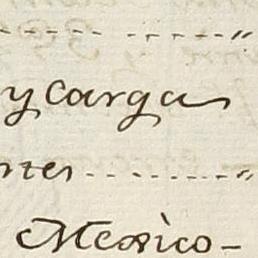 y carga
nes
Mexico-